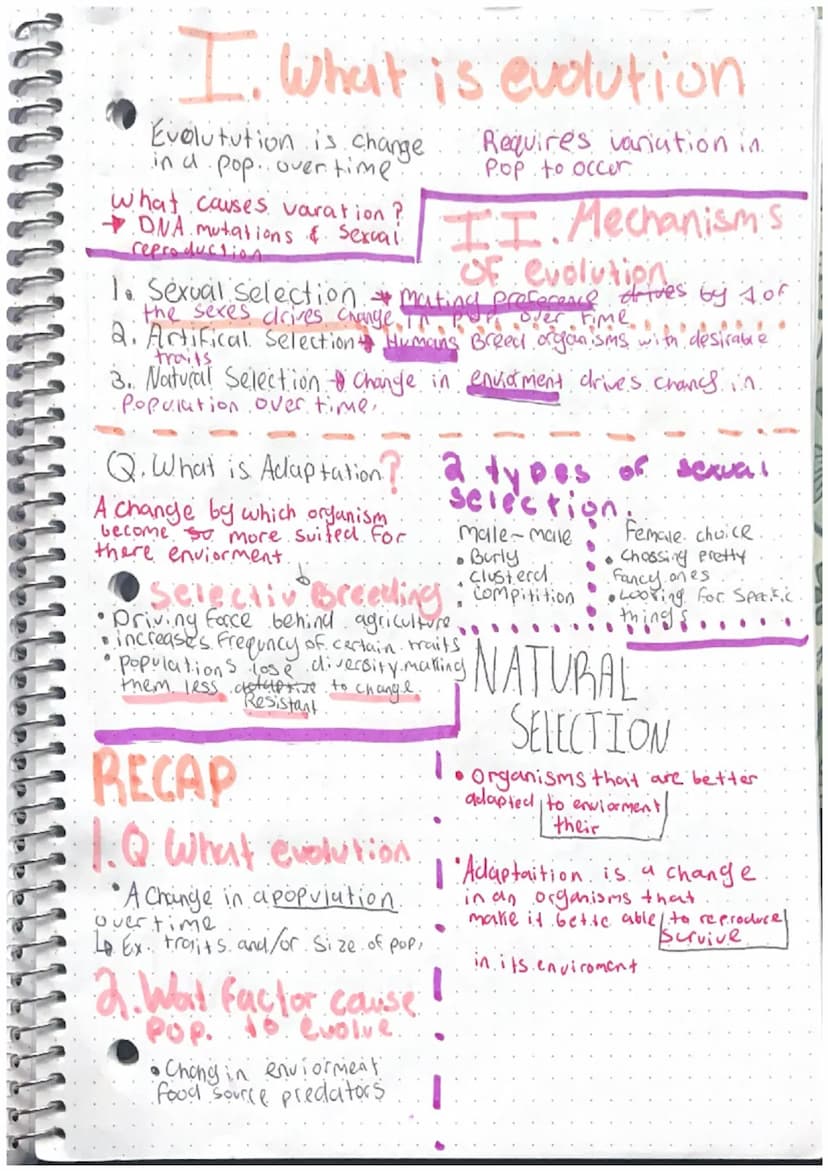 I. What is evolution
Evolutution is change
in a pop. over time
Requires variation in
pop to occur
What causes varation?
→ DNA mutations & sexual
reproduction
II. Mechanisms
of evolution
1. Sexual selection → Mating preference drives by 1 of
the sexes drives change in pop over time
2. Artifical Selection → Humans Breed organisms with desirable
traits
3. Natural Selection → Change in enviorment drives chang in
population over time.
Q. What is Adaptation?
A change by which organism
become so more suited for
there enviorment
Selectiv Breeding
• Driving force behind agriculture
• increases frequncy of certain traits
• populations lose diversity making
them less adaptive to change
Resistant
2 types of sexual
selection.
Male-male
• Burly
• clusterd
• compitition
Female choice
• Chossing pretty
fancy ones
• Looking for spesific
things
NATURAL
SELECTION
• Organisms that are better
adapted to enviorment
their
• Adaptaition is a change
in an organisms that
make it bette able to reproduce
survive
in its enviroment
RECAP
1. Q What evolution
• A Change in a population
over time
↳ Ex. traits and/or size of pop.
2. Wat factor cause
pop. to evolve
• Chang in enviorment
food source predators